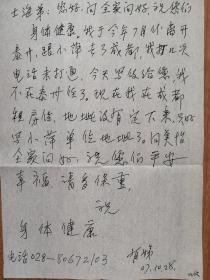 士海弟：您好，问全家问好，祝您们
身体健康。我于今年7月份离开
泰州，跟小萍去了成都，我打几次
电话未打通，今天写信给您，我
不在泰州住了，现在我在成都
租房住，地址没有定下来，只好
写小萍单位地址了。问美怡
全家问好，祝您们平安
幸福，请多保重。
祝
身体健康
电话028-80672103
07.10.28.